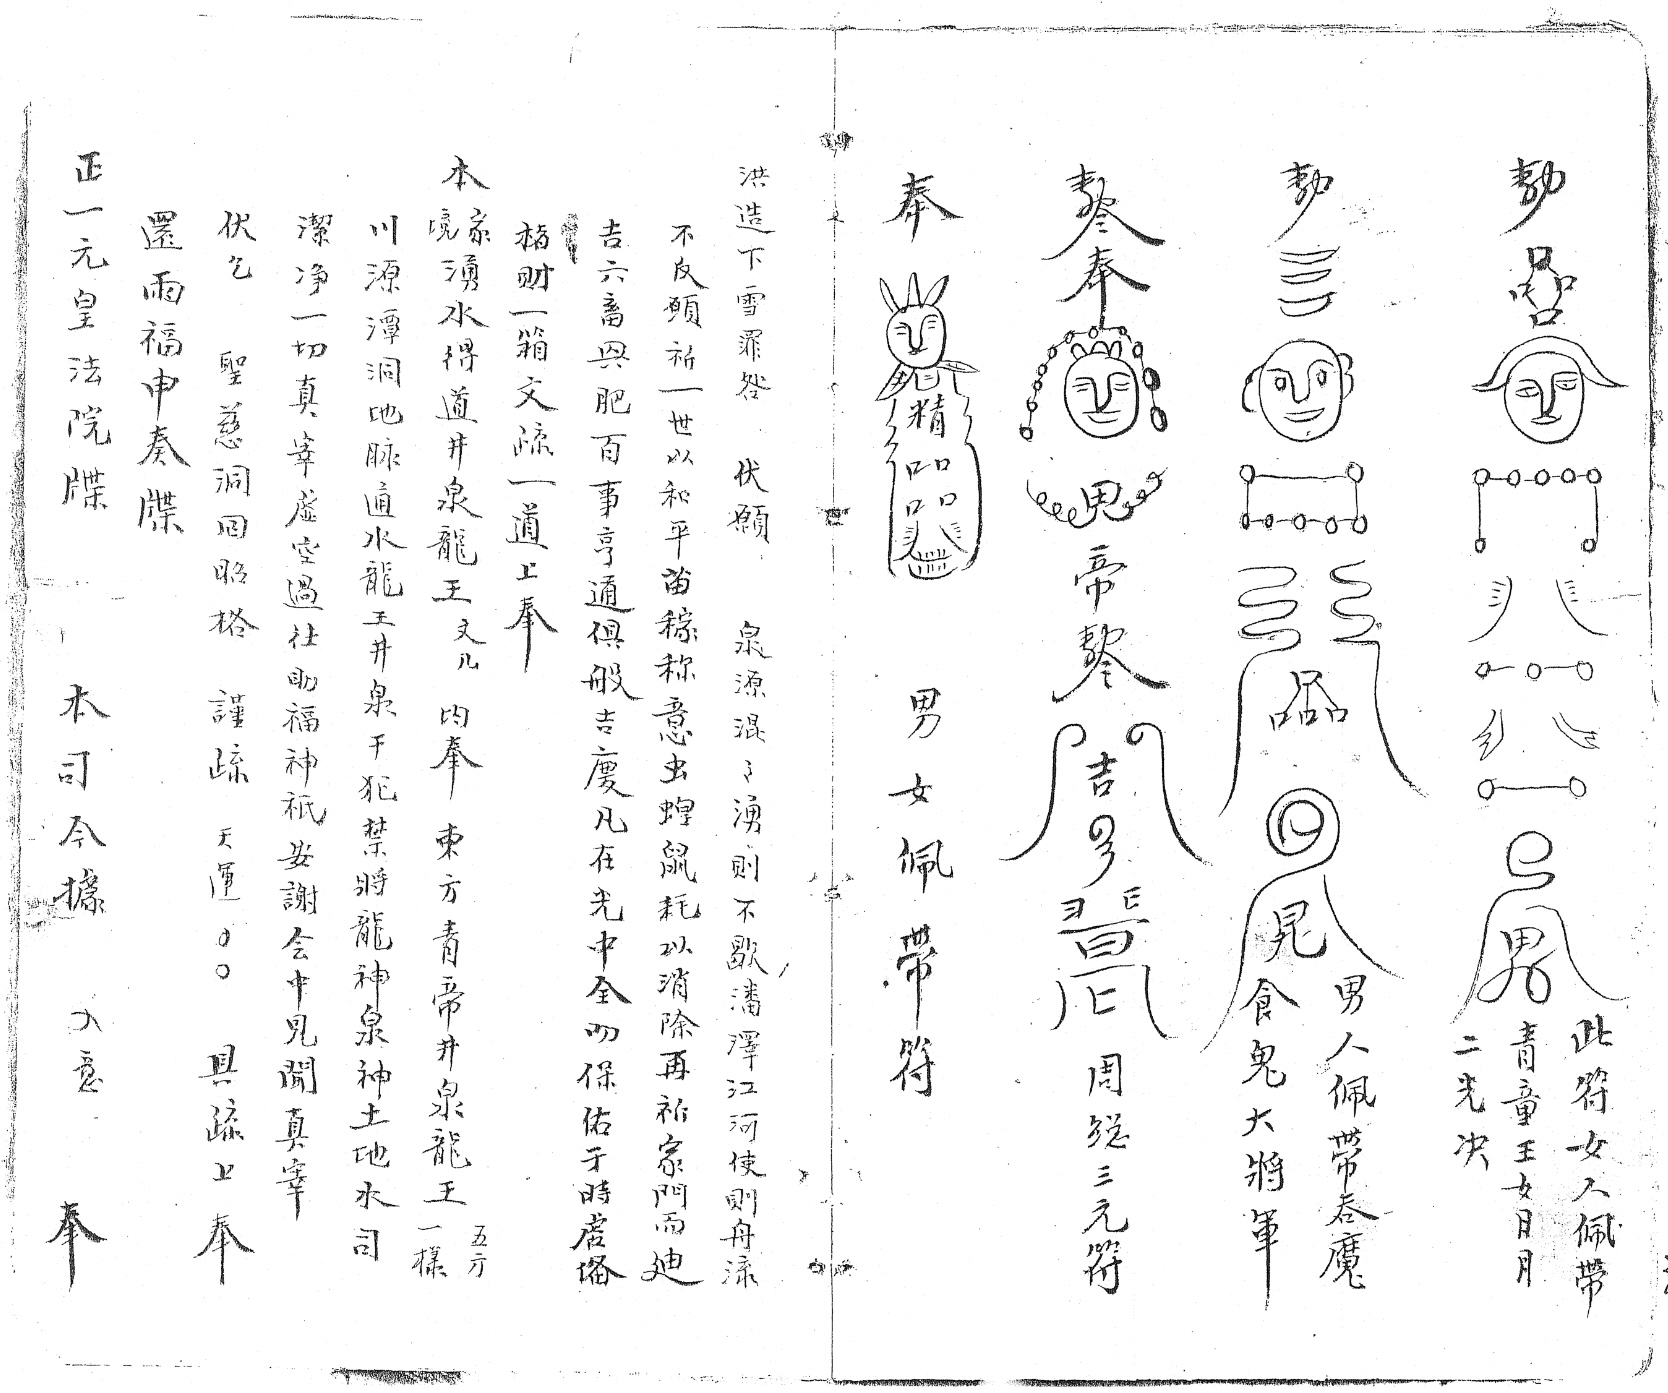 勅
此符女人佩帶
青童玉女日月
二光決
勅
男人佩帶吞魔
食鬼大將軍
奉
帝
吉
周總三元符
奉
精
男女佩帶符
洪造下雪罪咎 伏願 泉源混々湧則不歇潘澤江河使則舟流
不反願祈一世以和平苗稼称意虫蝗鼠耗以消除再祈家門而迪
吉六畜興肥百事亨通俱般吉慶凡在光中全叨保佑于時虔備
楮財一箱文疏一道上奉
本家境湧水得道井泉龍王文几 均奉 東方青帝井泉龍王五方一樣
川源潭洞地脉通水龍王井泉干犯禁將龍神泉神土地水司
潔净一切真宰虛空過往助福神祇毋謝会中見聞真宰
伏乞 聖慈洞回昭格 謹疏 天運〻〇 具疏上奉
還雨福申奏牒
正一元皇法院牒 本司今據 入意 奉